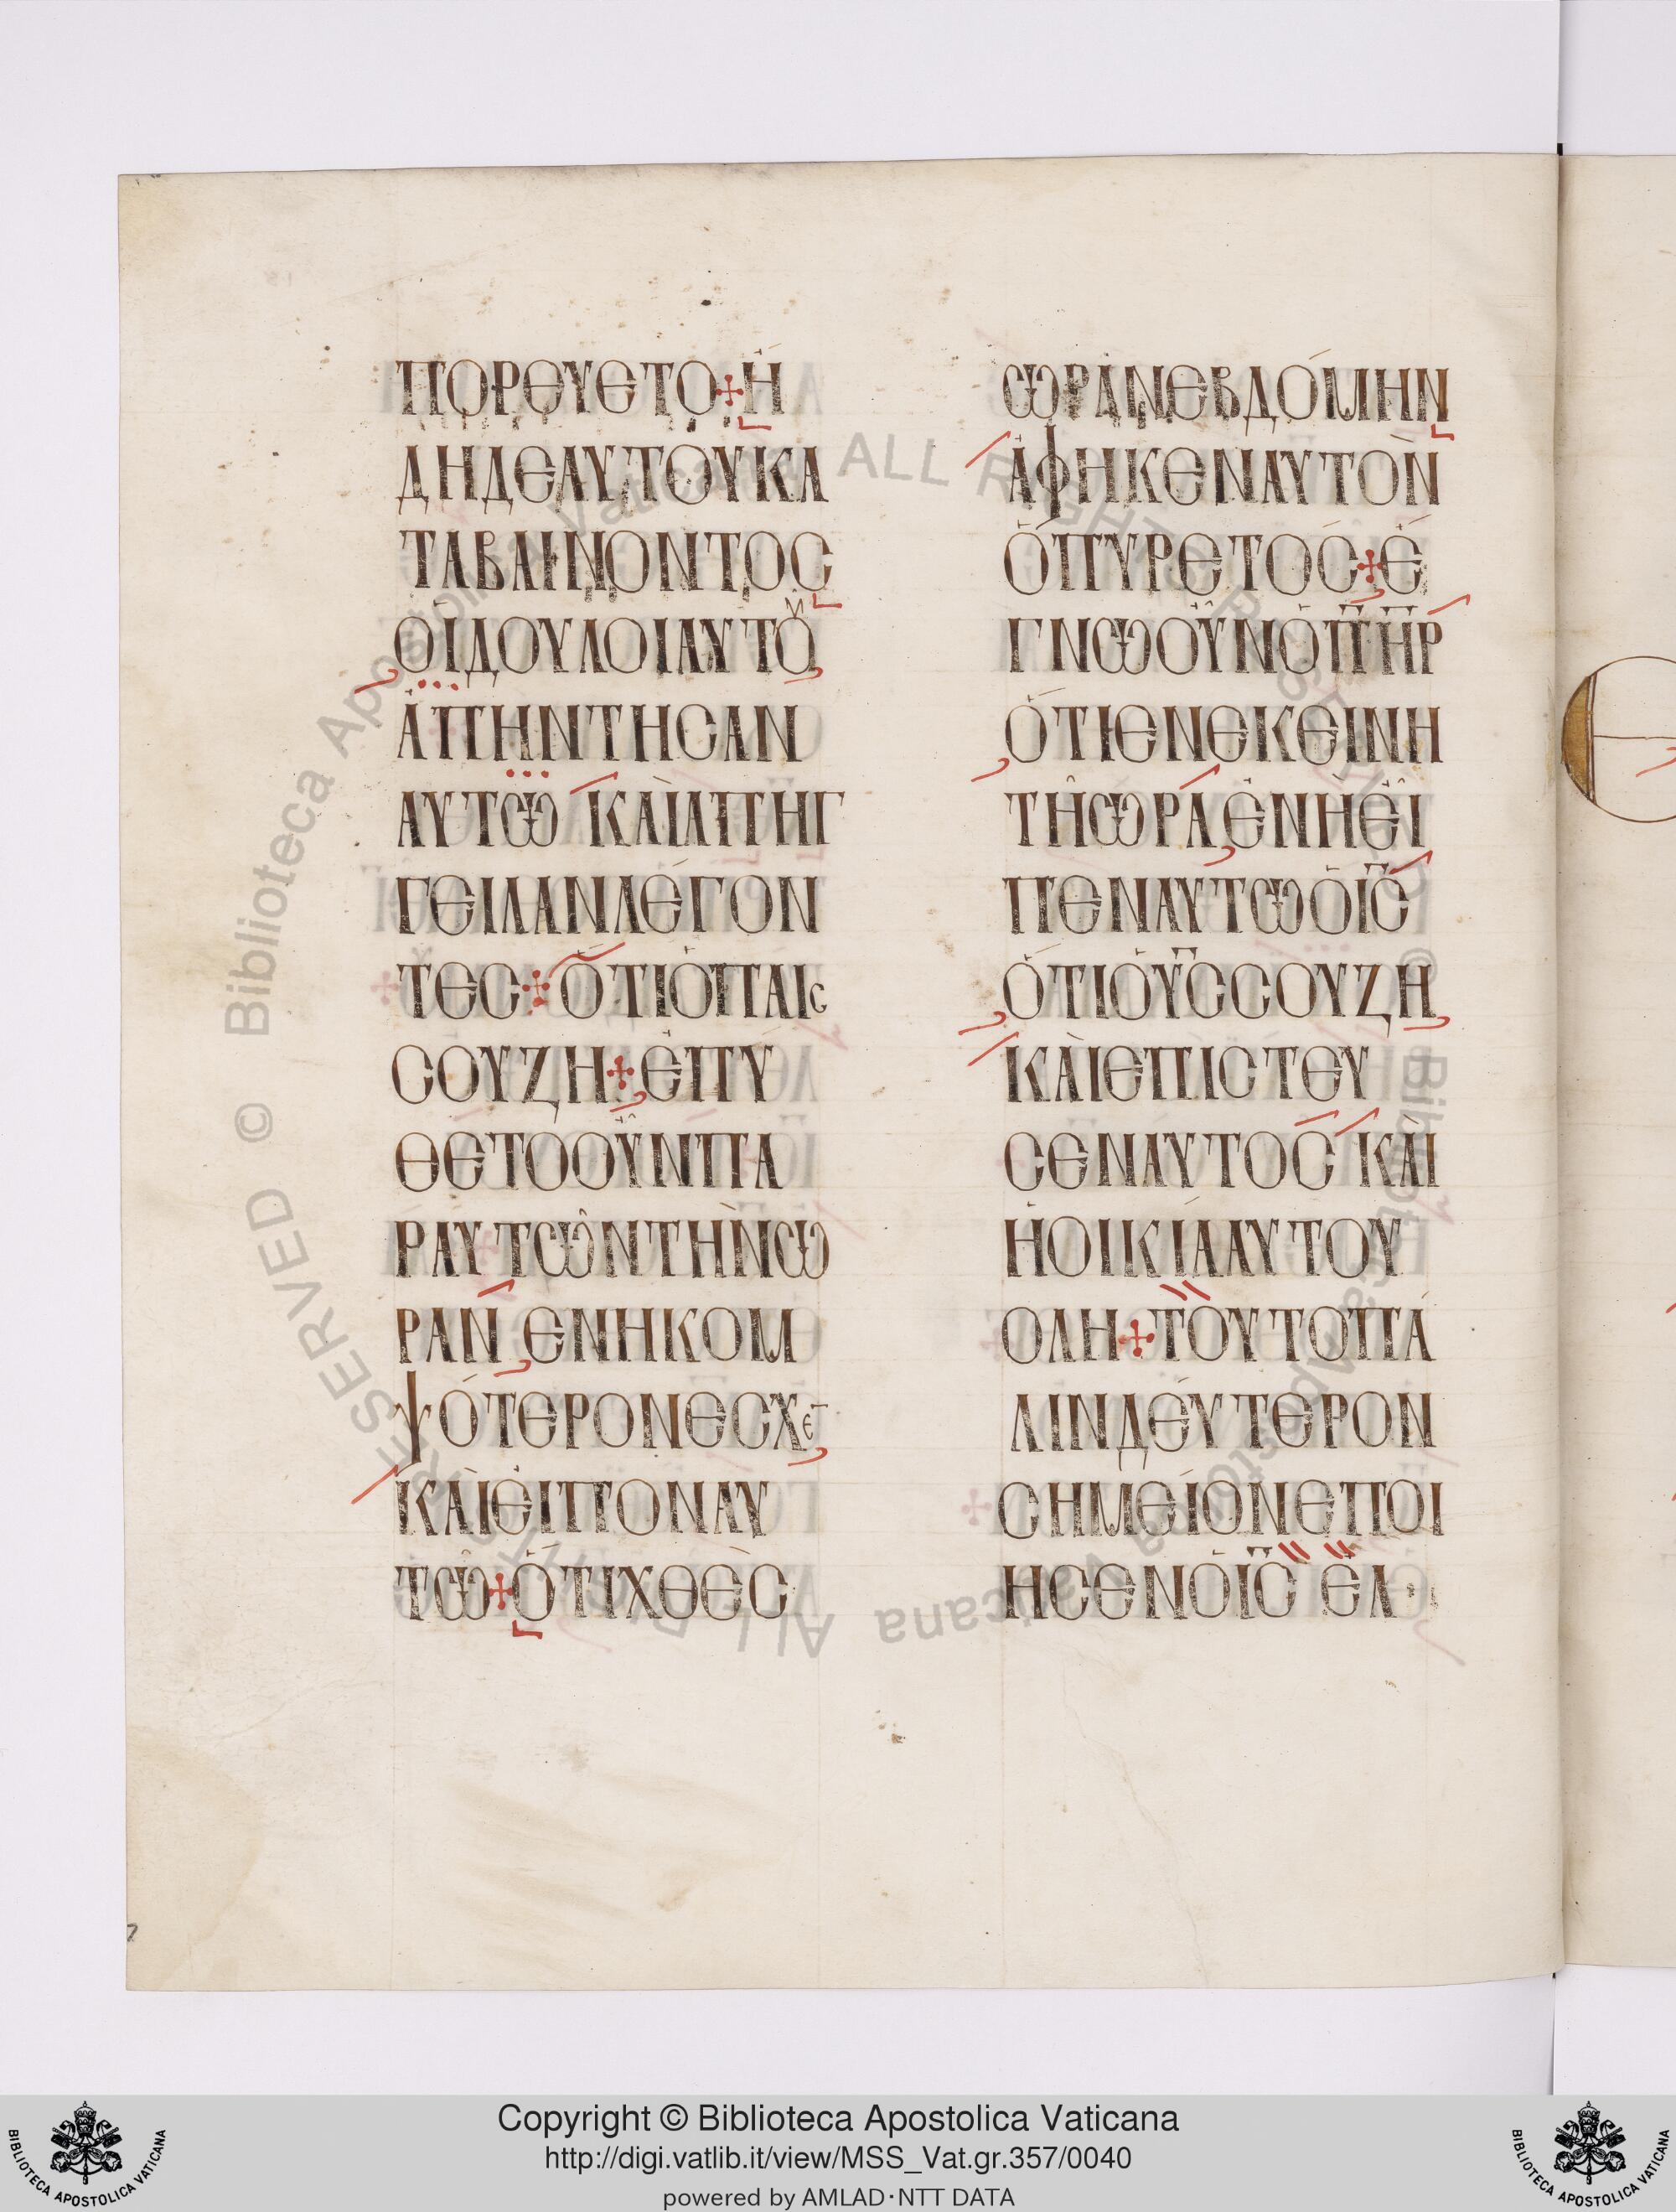 ΠΟΡΕΥΕΤΟ + Ἠ
ΔΗΔΕΑΥΤΟΥΚΑ
ΤΑΒΑΙΝΟΝΤΟC
ΟἹΔΟΥΛΟΙΑΥΤȢ
ἈΠΗΝΤΗCΑΝ
ΑΥΤΩ ΚΑῚΑΠΗΓ
ΓΕΙΛΑΝΛΈΓΟΝ
ΤΕC + ὍΤΙὉΠΑΙC
CΟΥΖΗ + ἘΠΥ
ΘΕΤΟΟΥ͂ΝΠΑ
ΡΑΥΤΩ͂ΝΤῊΝΩ
ΡΑΝ ΕΝΗΚΟΜ
ΨΌΤΕΡΟΝΕCΧΕ̅
ΚΑῚΕἸΠΟΝΑΥ
ΤΩ͂ + ὍΤΙΧΘῈC
ΩΡΑΝΕΒΔΌΜΗΝ
ἈΦΗΚΕΝΑΥΤῸΝ
ὉΠΥΡΕΤΌC + Ἔ
ΓΝΩΟΥ͂ΝὉΠ̅Η̅Ρ
ὍΤΙΕΝΕΚΕΙΝΗ
ΤΗ͂ΩΡΑ ἘΝΗΕἾ
ΠΕΝΑΥΤΩὉΙ̅C̅
ὍΤΙὉΥ̅C̅CΟΥΖΗ
ΚΑῚΕΠΙCΤΕΥ
CΕΝΑΥΤΟC ΚΑῚ
ἩΟΙΚΊΑΑΥΤΟΥ
ΟΛΗ + ΤΟΥΤΟΠΆ
ΛΙΝΔΕΎΤΕΡΟΝ
CΗΜΕΙ͂ΟΝΕΠΟΙ
ΗCΕΝὉΙ̅C̅ ἘΛ
Copyright © Biblioteca Apostolica Vaticana
http://digi.vatlib.it/view/MSS_Vat.gr.357/0040
powered by AMLAD·NTT DATA
BIBLIOTECA APOSTOLICA VATICANA
BIBLIOTECA APOSTOLICA VATICANA